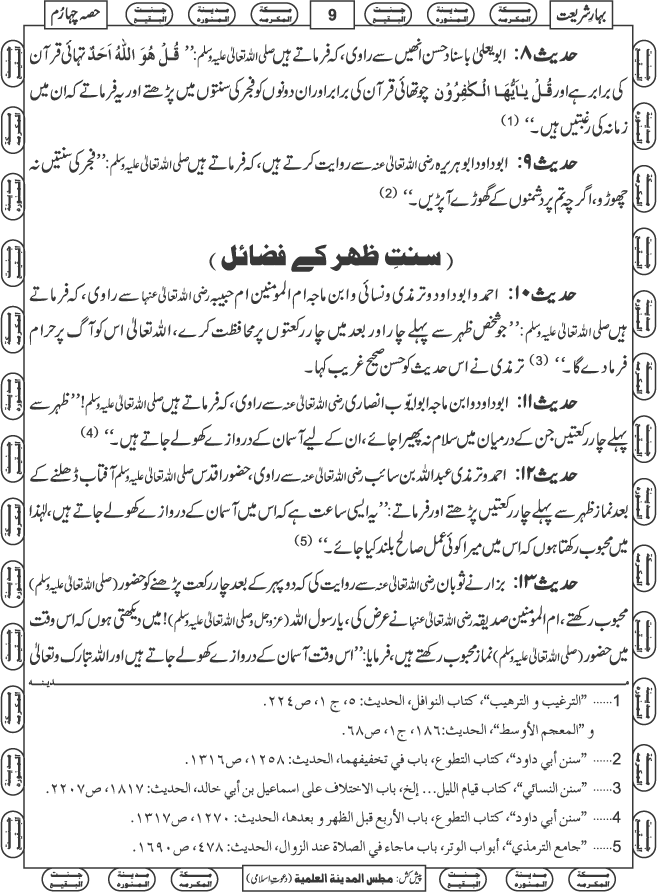 بہارِ شریعت
9
حصہ چہارم
حدیث ۸: ابو یعلیٰ باسناد حسن انھیں سے راوی، کہ فرماتے ہیں صلی اللہ تعالیٰ علیہ وسلم: ’’ قُلْ هُوَ اللّٰهُ اَحَدٌ تہائی قرآن
کی برابر ہے اور قُلْ يٰاَيُّهَا الْكٰفِرُوْنَ چوتھائی قرآن کی برابر اور ان دونوں کو فجر کی سنتوں میں پڑھتے اور یہ فرماتے کہ ان میں
زمانہ کی رغبتیں ہیں۔‘‘ (1)
حدیث ۹: ابو داود ابوہریرہ رضی اللہ تعالیٰ عنہ سے روایت کرتے ہیں، کہ فرماتے ہیں صلی اللہ تعالیٰ علیہ وسلم: ’’فجر کی سنتیں نہ
چھوڑو، اگرچہ تم پر دشمنوں کے گھوڑے آپڑیں۔‘‘ (2)
( سنتِ ظهر کے فضائل )
حدیث ۱۰: احمد و ابو داود و ترمذی و نسائی و ابن ماجہ ام المومنین ام حبیبہ رضی اللہ تعالیٰ عنہا سے راوی، کہ فرماتے
ہیں صلی اللہ تعالیٰ علیہ وسلم: ’’جو شخص ظہر سے پہلے چار اور بعد میں چار رکعتوں پر محافظت کرے، اللہ تعالیٰ اس کو آگ پر حرام
فرما دے گا۔‘‘ (3) ترمذی نے اس حدیث کو حسن صحیح غریب کہا۔
حدیث ۱۱: ابو داود و ابن ماجہ ابو ایّوب انصاری رضی اللہ تعالیٰ عنہ سے راوی، کہ فرماتے ہیں صلی اللہ تعالیٰ علیہ وسلم! ’’ظہر سے
پہلے چار رکعتیں جن کے درمیان میں سلام نہ پھیرا جائے، ان کے لیے آسمان کے دروازے کھولے جاتے ہیں۔‘‘ (4)
حدیث ۱۲: احمد و ترمذی عبداللہ بن سائب رضی اللہ تعالیٰ عنہ سے راوی، حضور اقدس صلی اللہ تعالیٰ علیہ وسلم آفتاب ڈھلنے کے
بعد نماز ظہر سے پہلے چار رکعتیں پڑھتے اور فرماتے: ’’یہ ایسی ساعت ہے کہ اس میں آسمان کے دروازے کھولے جاتے ہیں، لہٰذا
میں محبوب رکھتا ہوں کہ اس میں میرا کوئی عمل صالح بلند کیا جائے۔‘‘ (5)
حدیث ۱۳: بزار نے ثوبان رضی اللہ تعالیٰ عنہ سے روایت کی کہ دوپہر کے بعد چار رکعت پڑھنے کو حضور (صلی اللہ تعالیٰ علیہ وسلم)
محبوب رکھتے، ام المومنین صدیقہ رضی اللہ تعالیٰ عنہا نے عرض کی، یا رسول اللہ (عزوجل و صلی اللہ تعالیٰ علیہ وسلم)! میں دیکھتی ہوں کہ اس وقت
میں حضور (صلی اللہ تعالیٰ علیہ وسلم) نماز محبوب رکھتے ہیں، فرمایا: ’’اس وقت آسمان کے دروازے کھولے جاتے ہیں اور اللہ تبارک و تعالیٰ
مدینہ
1...... ”الترغيب و الترهيب“، كتاب النوافل، الحديث: ٥، ج ١، ص ٢٢٤.
و ”المعجم الأوسط“، الحديث: ١٨٦، ج١، ص٦٨.
2...... ”سنن أبي داود“، كتاب التطوع، باب في تخفيفهما، الحديث: ١٢٥٨، ص١٣١٦.
3...... ”سنن النسائي“، كتاب قيام الليل... إلخ، باب الاختلاف على اسماعيل بن أبي خالد، الحديث: ١٨١٧، ص٢٢٠٧.
4...... ”سنن أبي داود“، كتاب التطوع، باب الأربع قبل الظهر و بعدها، الحديث: ١٢٧٠، ص١٣١٧.
5...... ”جامع الترمذي“، أبواب الوتر، باب ماجاء في الصلاة عند الزوال، الحديث: ٤٧٨، ص١٦٩٠.
پیش کش: مجلس المدينة العلمية (دعوتِ اسلامی)